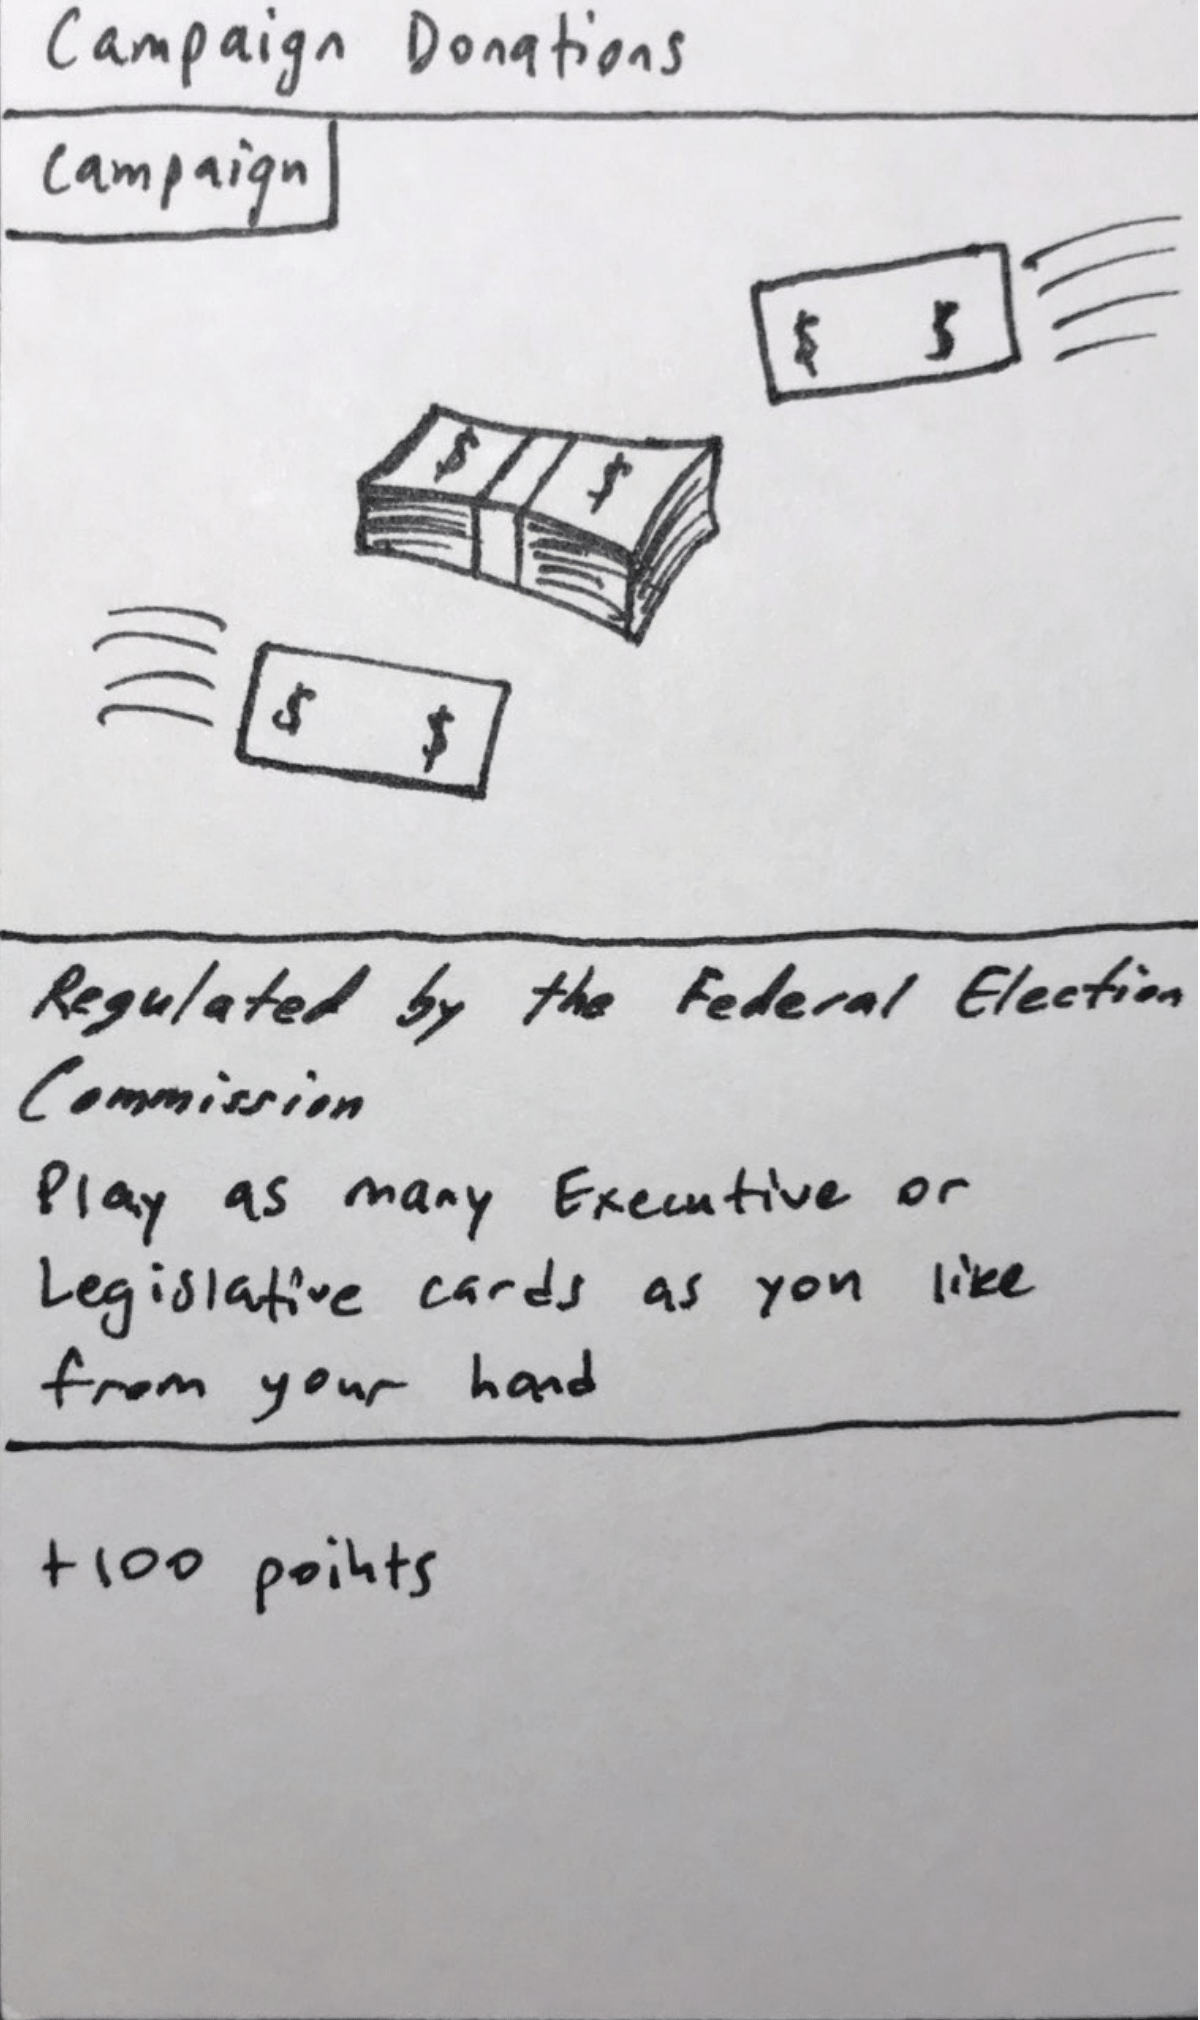 Campaign Donations
Campaign
$ $
$ $
$ $
Regulated by the Federal Election
Commission
Play as many Executive or
Legislative cards as you like
from your hand
+100 points